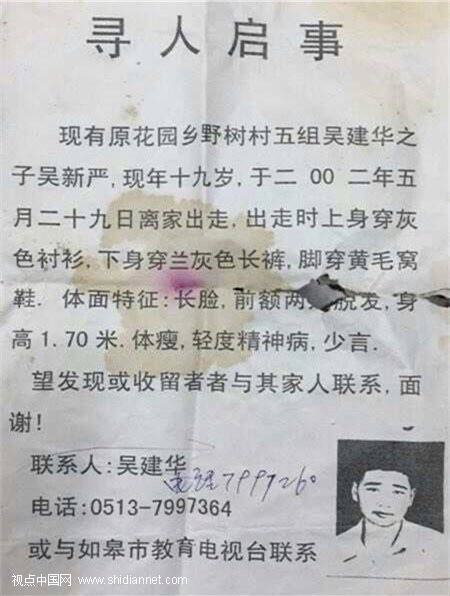 寻人启事
现有原花园乡野树村五组吴建华之
子吴新严,现年十九岁,于二00二年五
月二十九日离家出走,出走时上身穿灰
色衬衫,下身穿兰灰色长裤,脚穿黄毛窝
鞋.体面特征:长脸,前额两 脱发,身
高1.70米.体瘦,轻度精神病,少言.
望发现或收留者者与其家人联系,面
谢!
联系人:吴建华
799926
电话:0513-7997364
或与如皋市教育电视台联系
视点中国网 www.shidiannet.com